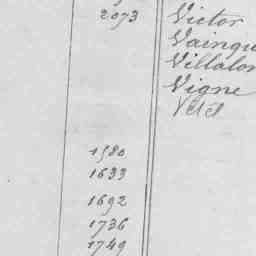 2073 Victor
Vainqu
Villalon
Vigne
1580
1633
1692
1736
1749